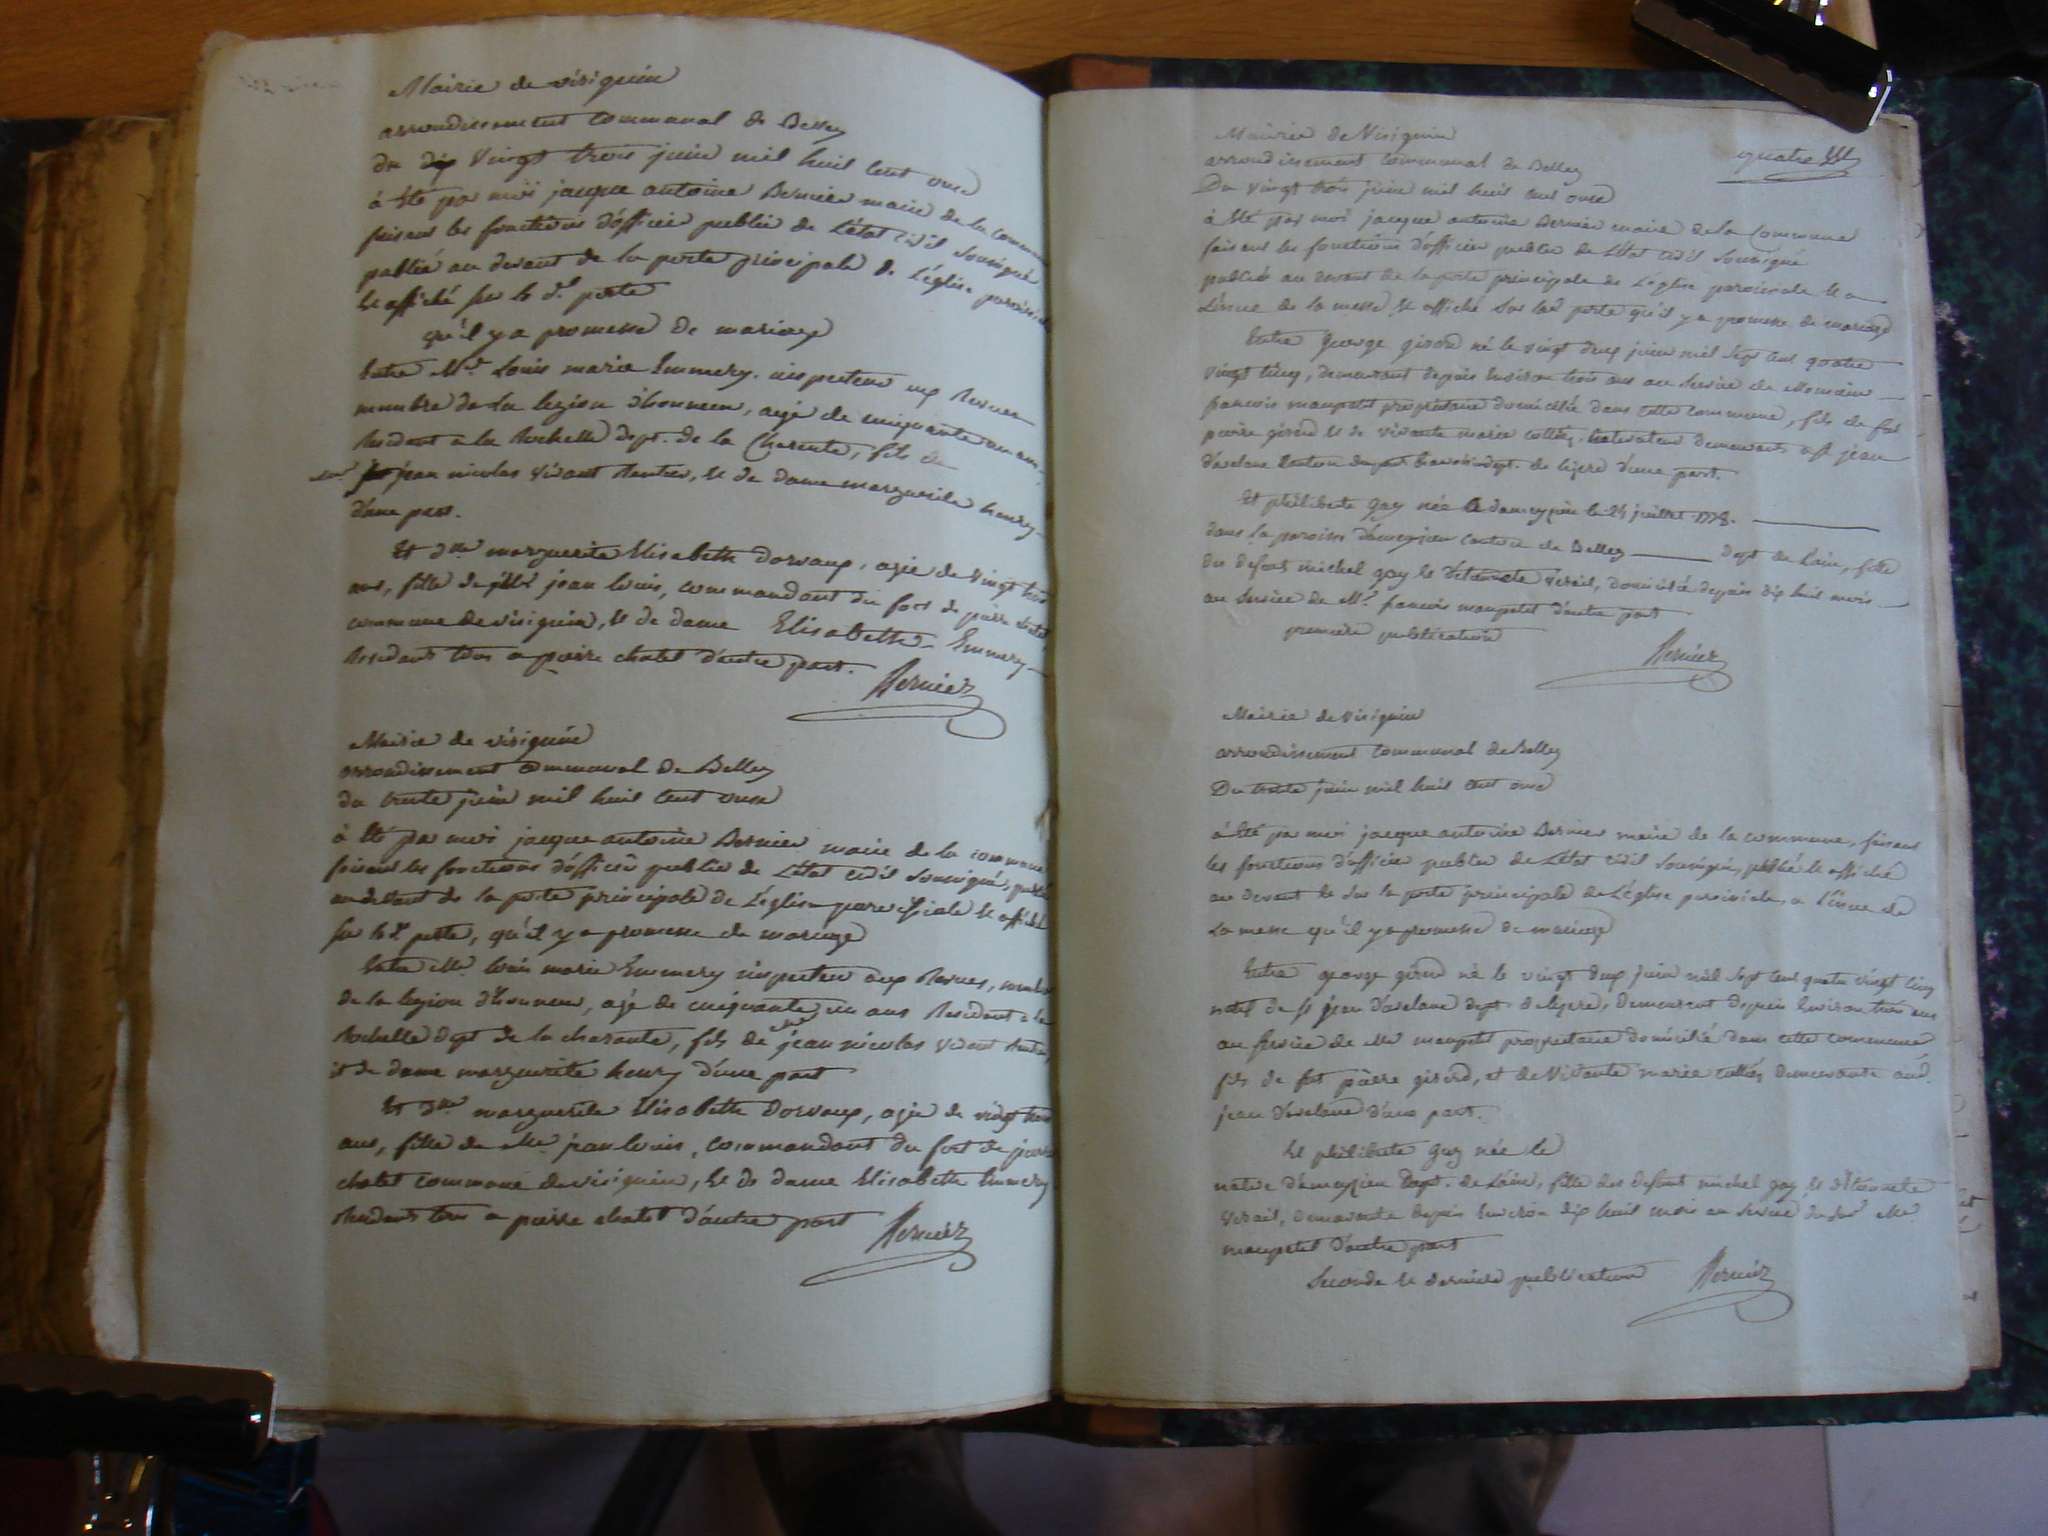 Mairie de virignin
arrondissement communal de Belley
du dix vingt trois juin mil huit cent onze
à été par moi jacque antoine Bernier maire de la commune
faisant les fonctions d'officier public de L'état civil soussigné
publié au devant de la porte principale de L'église paroissiale
et affiché sur la de. porte
qu'il y a promesse de mariage
Entre Mr. Louis marie Emmery. inspecteur aux Revues
membre de la legion d'honneur, agé de cinquante un ans
Résidant a la Rochelle dept. de la Charente, fils de
jean nicolas vivant Rentier, et de dame marguerite henry
d'une part.
Et dlle marguerite Elisabeth dorvaux, agée de vingt trois
ans, fille de jean louis, commandant du fort de pierre chatel
commune de virignin, et de dame Elisabeth Emmery
Résidants tous a pierre chatel d'autre part.
Bernier
Mairie de virignin
arrondissement communal de Belley
du trente juin mil huit cent onze
à été par moi jacque antoine Bernier maire de la commune
faisant les fonctions d'officier public de L'état civil soussigné, publié
au devant de la porte principale de L'église paroissiale et affiché
sur la de porte, qu'il y a promesse de mariage
Entre Mr. louis marie Emmery inspecteur aux Revues, membre
de la legion d'honneur, agé de cinquante un ans Résidant a la
Rochelle dept de la charante, fils de jean nicolas vivant Rentier,
et de dame marguerite henry d'une part
Et dlle marguerite Elisabeth dorvaux, agée de vingt trois
ans, fille de Mr. jean louis, commandant du fort de pierre
chatel commune de virignin, et de dame Elisabeth Emmery
Résidants tous a pierre chatel d'autre part
Bernier
quatre
Mairie de Virignin
arrondissement communal de Belley
Du vingt trois juin mil huit cent onze
à été par moi jacque antoine Bernier maire de la Commune
faisant les fonctions d'officier public de L'état civil soussigné
publié au devant de la porte principale de L'église paroissiale et a
L'issue de la messe et affiché sur lad porte qu'il y a promesse de mariage
Entre george girod né le vingt deux juin mil sept cent quatre
vingt cinq, demeurant depuis Environ trois ans au service de Monsieur
francois maupetit propriétaire domicilié dans cette commune, fils de feu
pierre girod et de vivante marie demeurants a St jean
d'avelane dept. de lizere d'une part.
Et philiberte gay née a dameyzieu le 24 juillet 1778.
dans la paroisse d'ameyzieu canton de Belley dept de Lain, fille
des defunts michel gay et domiciliée depuis dix huit mois
au service de Mr. francois maupetit d'autre part
première publication
Bernier
Mairie de virignin
arrondissement communal de Belley
Du trente juin mil huit cent onze
à été par moi jacque antoine Bernier maire de la commune, faisant
les fonctions d'officier public de L'état civil soussigné, publié et affiché
au devant et sur la porte principale de L'église paroissiale, a l'issue de
La messe qu'il y a promesse de mariage
Entre george girod né le vingt deux juin mil sept cent quatre vingt cinq
natif de St jean d'avelane dept. de lizere, demeurant depuis Environ trois ans
au service de Mr maupetit propriétaire domicilié dans cette commune
fils de feu pierre girod, et de Vivante marie demeurante aud.
jean d'avelane d'une part.
Et philiberte gay née le
native d'ameyzieu dept. de Lain, fille des defunts michel gay et
demeurante depuis Environ dix huit mois au service dud Mr.
maupetit d'autre part
Seconde et derniere publication
Bernier